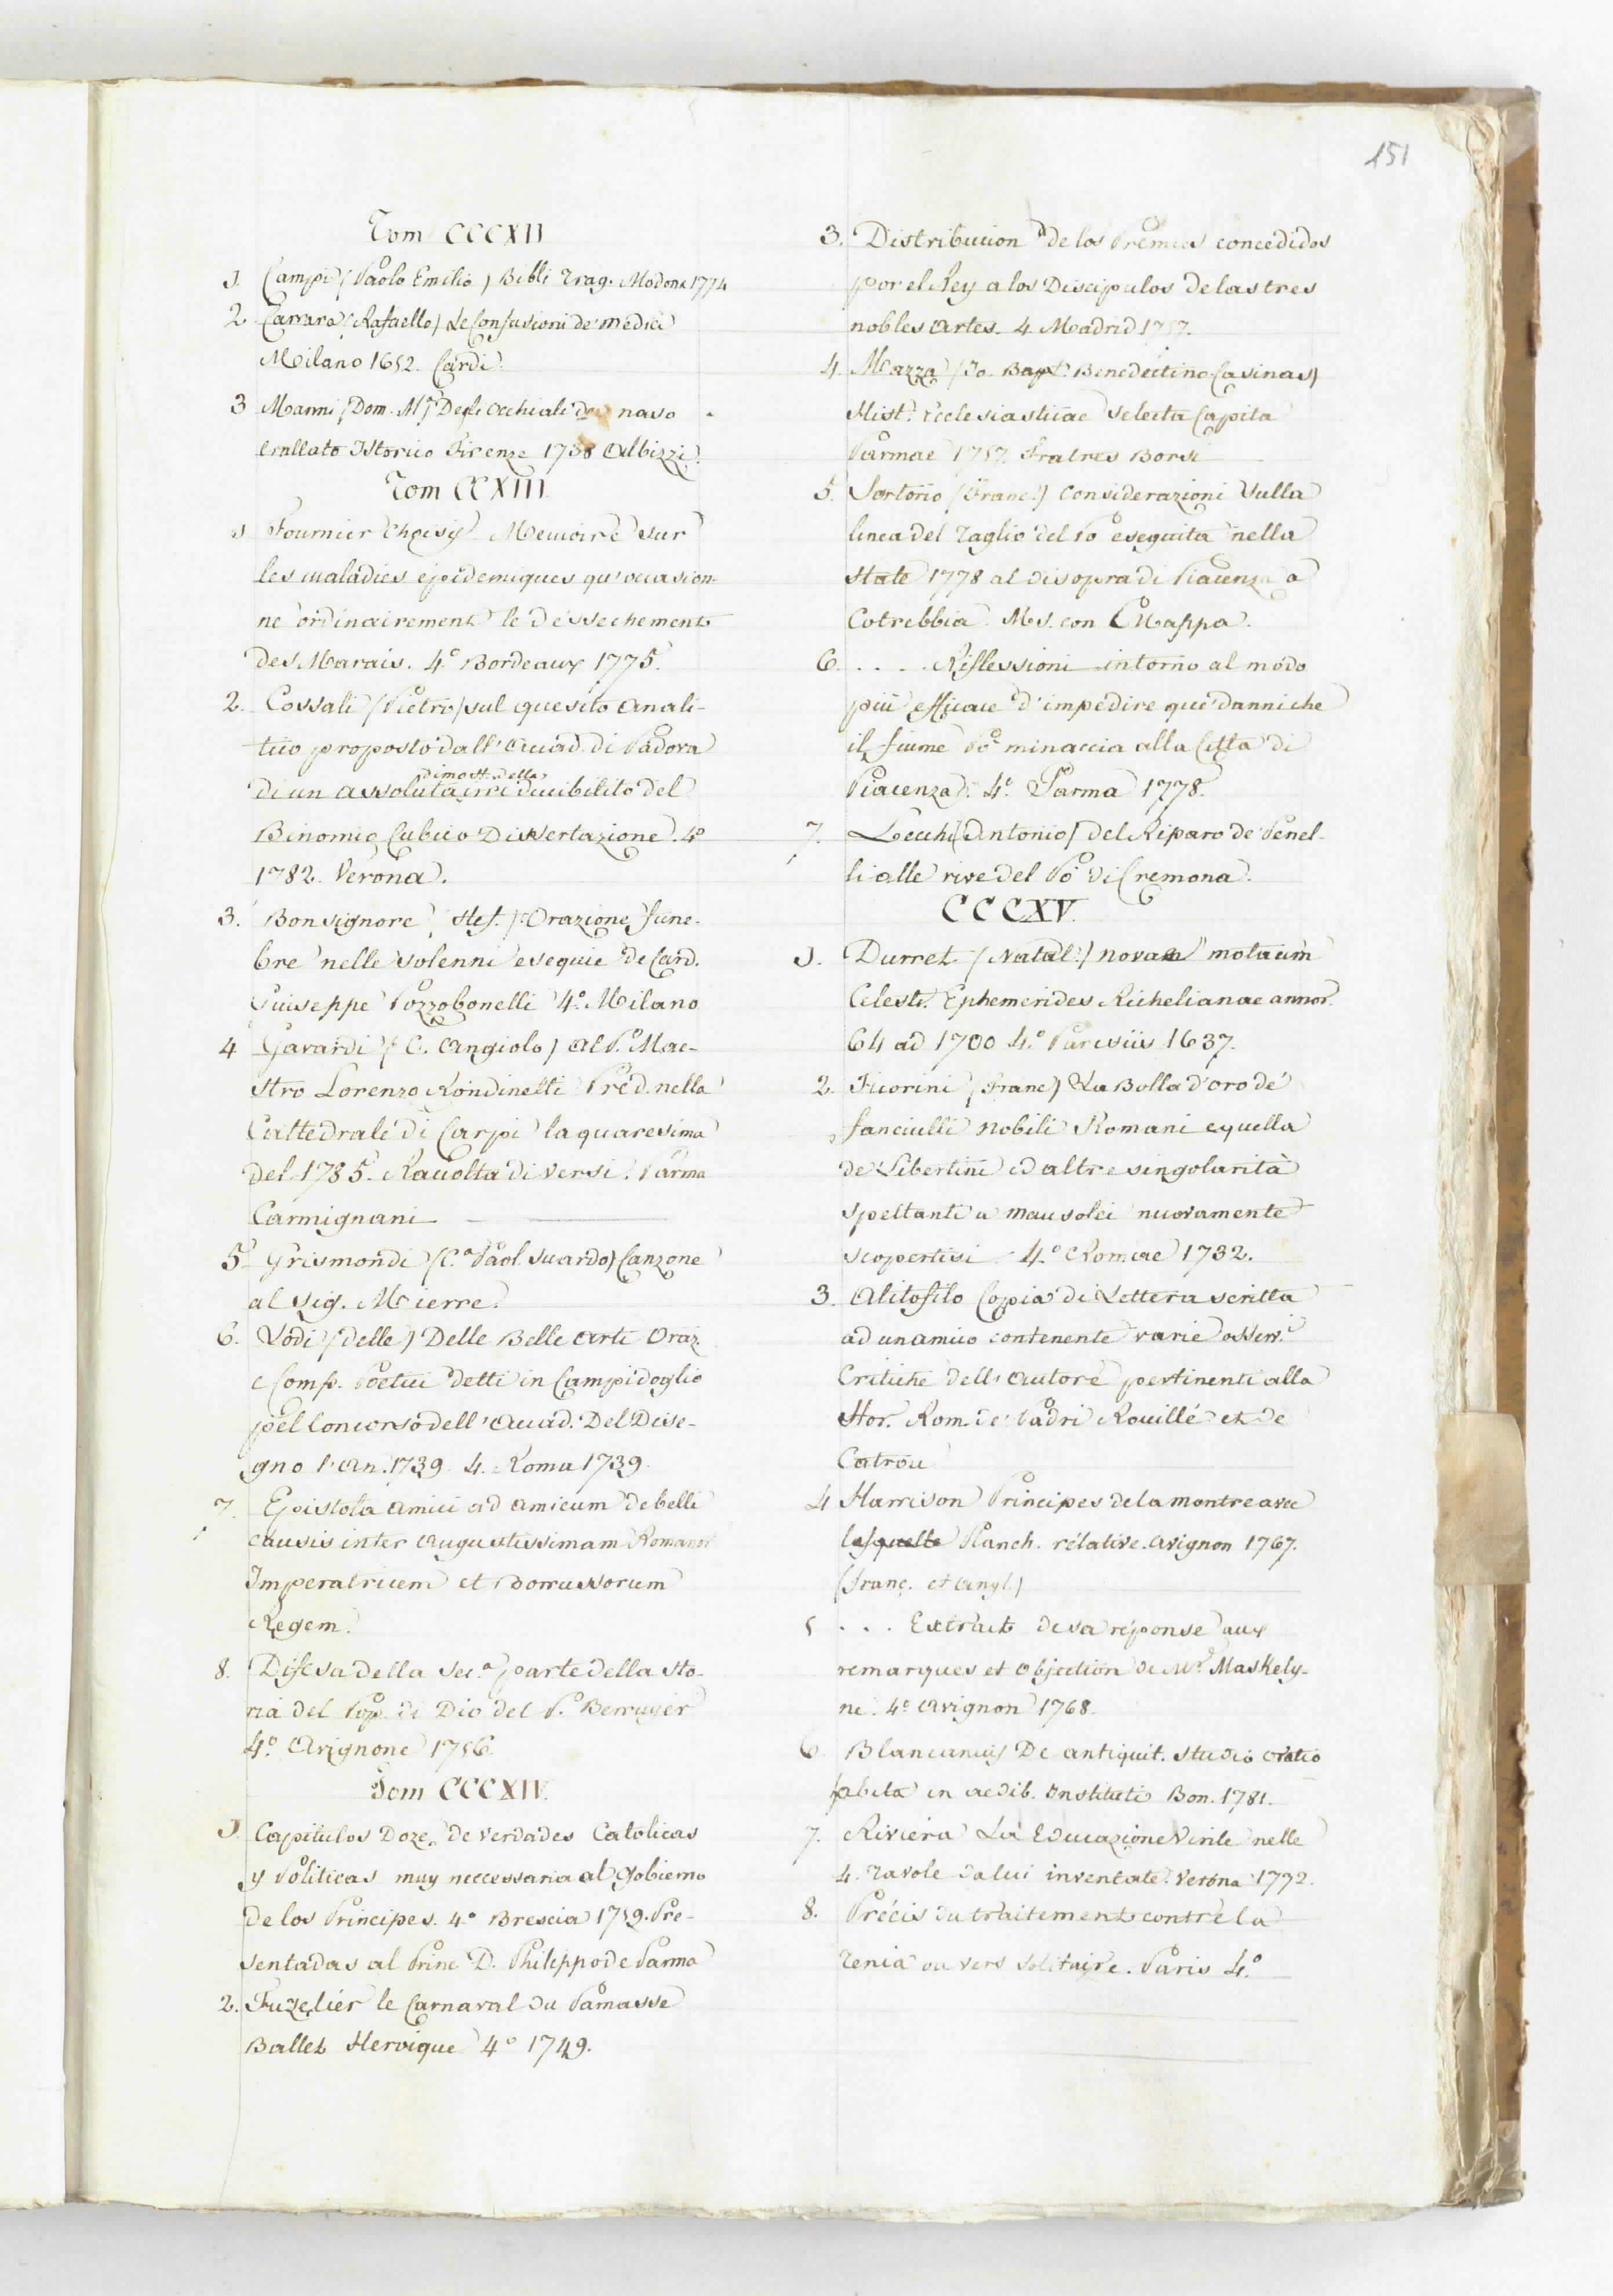 151
Tom CCCXII
1. Campi (Paolo Emilio) Bibli Trag. Modona 1774
2 Carrara (Rafaello) Le Confusioni de' medici
Milano 1652. Cardi.
3 Manni (Dom. M.) Degli occhiali da naso
trattato Istorico Firenze 1738 Albizzi.
Tom CCXIII.
1 Fournier Choisy Memoire sur
les maladies epidemiques qu'occasion-
ne ordinairement le dessechement
des Marais. 4.º Bordeaux 1775.
2. Cossali (Pietro) sul quesito Anali-
tico proposto dall' Accad. di Padova
dimost. della
di un assoluta irriducibilità del
Binomio Cubico Dissertazione. 4º
1782. Verona.
3. Bonsignore, Stef.) Orazione fune-
bre nelle solenni esequie de Card.
Guiseppe Pozzobonelli 4.º Milano
4 Gavardi (C. Angiolo) Al P. Mae-
stro Lorenzo Rondinetti Pred. nella
Cattedrale di Carpi la quaresima
del 1785. Raccolta di versi. Parma
Carmignani
5 Grismondi (C.ª Paol. Suardo) Canzone
al Sig. Mierre.
6. Lodi (delle) Delle Belle Arti Oraz.
e Comp. Poetici detti in Campidoglio
pel Concorso dell' Accad. Del Dise-
gno l'An. 1739. 4. Roma 1739.
7. Epistola amici ad amicum de belli
causis inter Augustissimam Romanor
Imperatricem et Borrussorum
Regem.
8. Difesa della Sec.ª parte della sto-
ria del Pop. di Dio del P. Berruyer
4.º Avignone 1756.
Tom CCCXIV.
1. Capitulos Doze de verdades Catolicas
y Politicas muy neccessaria al Gobierno
de los Principes. 4.º Brescia 1759. Pre-
sentadas al Princ D. Philippo de Parma
2. Fuzelier le Carnaval du Parnasse
Ballet Heroique 4º 1749.
3. Distribucion de los Premios concedidos
por el Rey a los Discipulos de las tres
nobles Artes. 4. Madrid 1757.
4. Mazza (Jo. Bapt. Benedectino Casinas)
Hist. Ecclesiasticae selecta Capita
Parmae 1757. Fratres Borsi
5. Sartorio (Franc.) Considerazioni sulla
linea del Taglio del Po eseguita nella
state 1778 al disopra di Piacenza a
Cotrebbia. Ms. con Mappa.
6. . . . . Riflessioni intorno al modo
più efficace d'impedire que' danni che
il fiume Po minaccia alla Citta di
Piacenza. 4.º Parma 1778.
7. Lecchi (Antonio) del Riparo de' Penel-
li alle rive del Po di Cremona.
CCCXV.
1. Durret (Natal.) novae motuum
Celest. Ephemerides Richelianae annor.
64 ad 1700 4.º Parisiis 1637.
2. Ficorini (Franc) La Bolla d'oro de'
fanciulli nobili Romani e quella
de' Libertini ed altre singolarità
spettanti a mausolei nuovamente
scopertisi. 4.º Romae 1732.
3. Alitofilo Copia di Lettera scritta
ad un amico contenente varie osserv.i
Critiche dell' Autore pertinenti alla
Stor. Rom. de' Padri Rouillé et de
Catrou
4 Harrison Principes de la montre avec
les Planch. rélative. Avignon 1767.
(Franç. et Angl.)
5 . . . Extrait de sa réponse aux
remarques et objection de Mr. Maskely-
ne. 4º Avignon 1768.
6. Blancanus De antiquit. studio oratio
habita in aedib. Instituti Bon. 1781.
7. Riviera La Educazione Virile nelle
4. Tavole da lui inventate. Verona 1772.
8. Précis du traitement contre la
Tenia ou vers solitaire. Paris 4.º